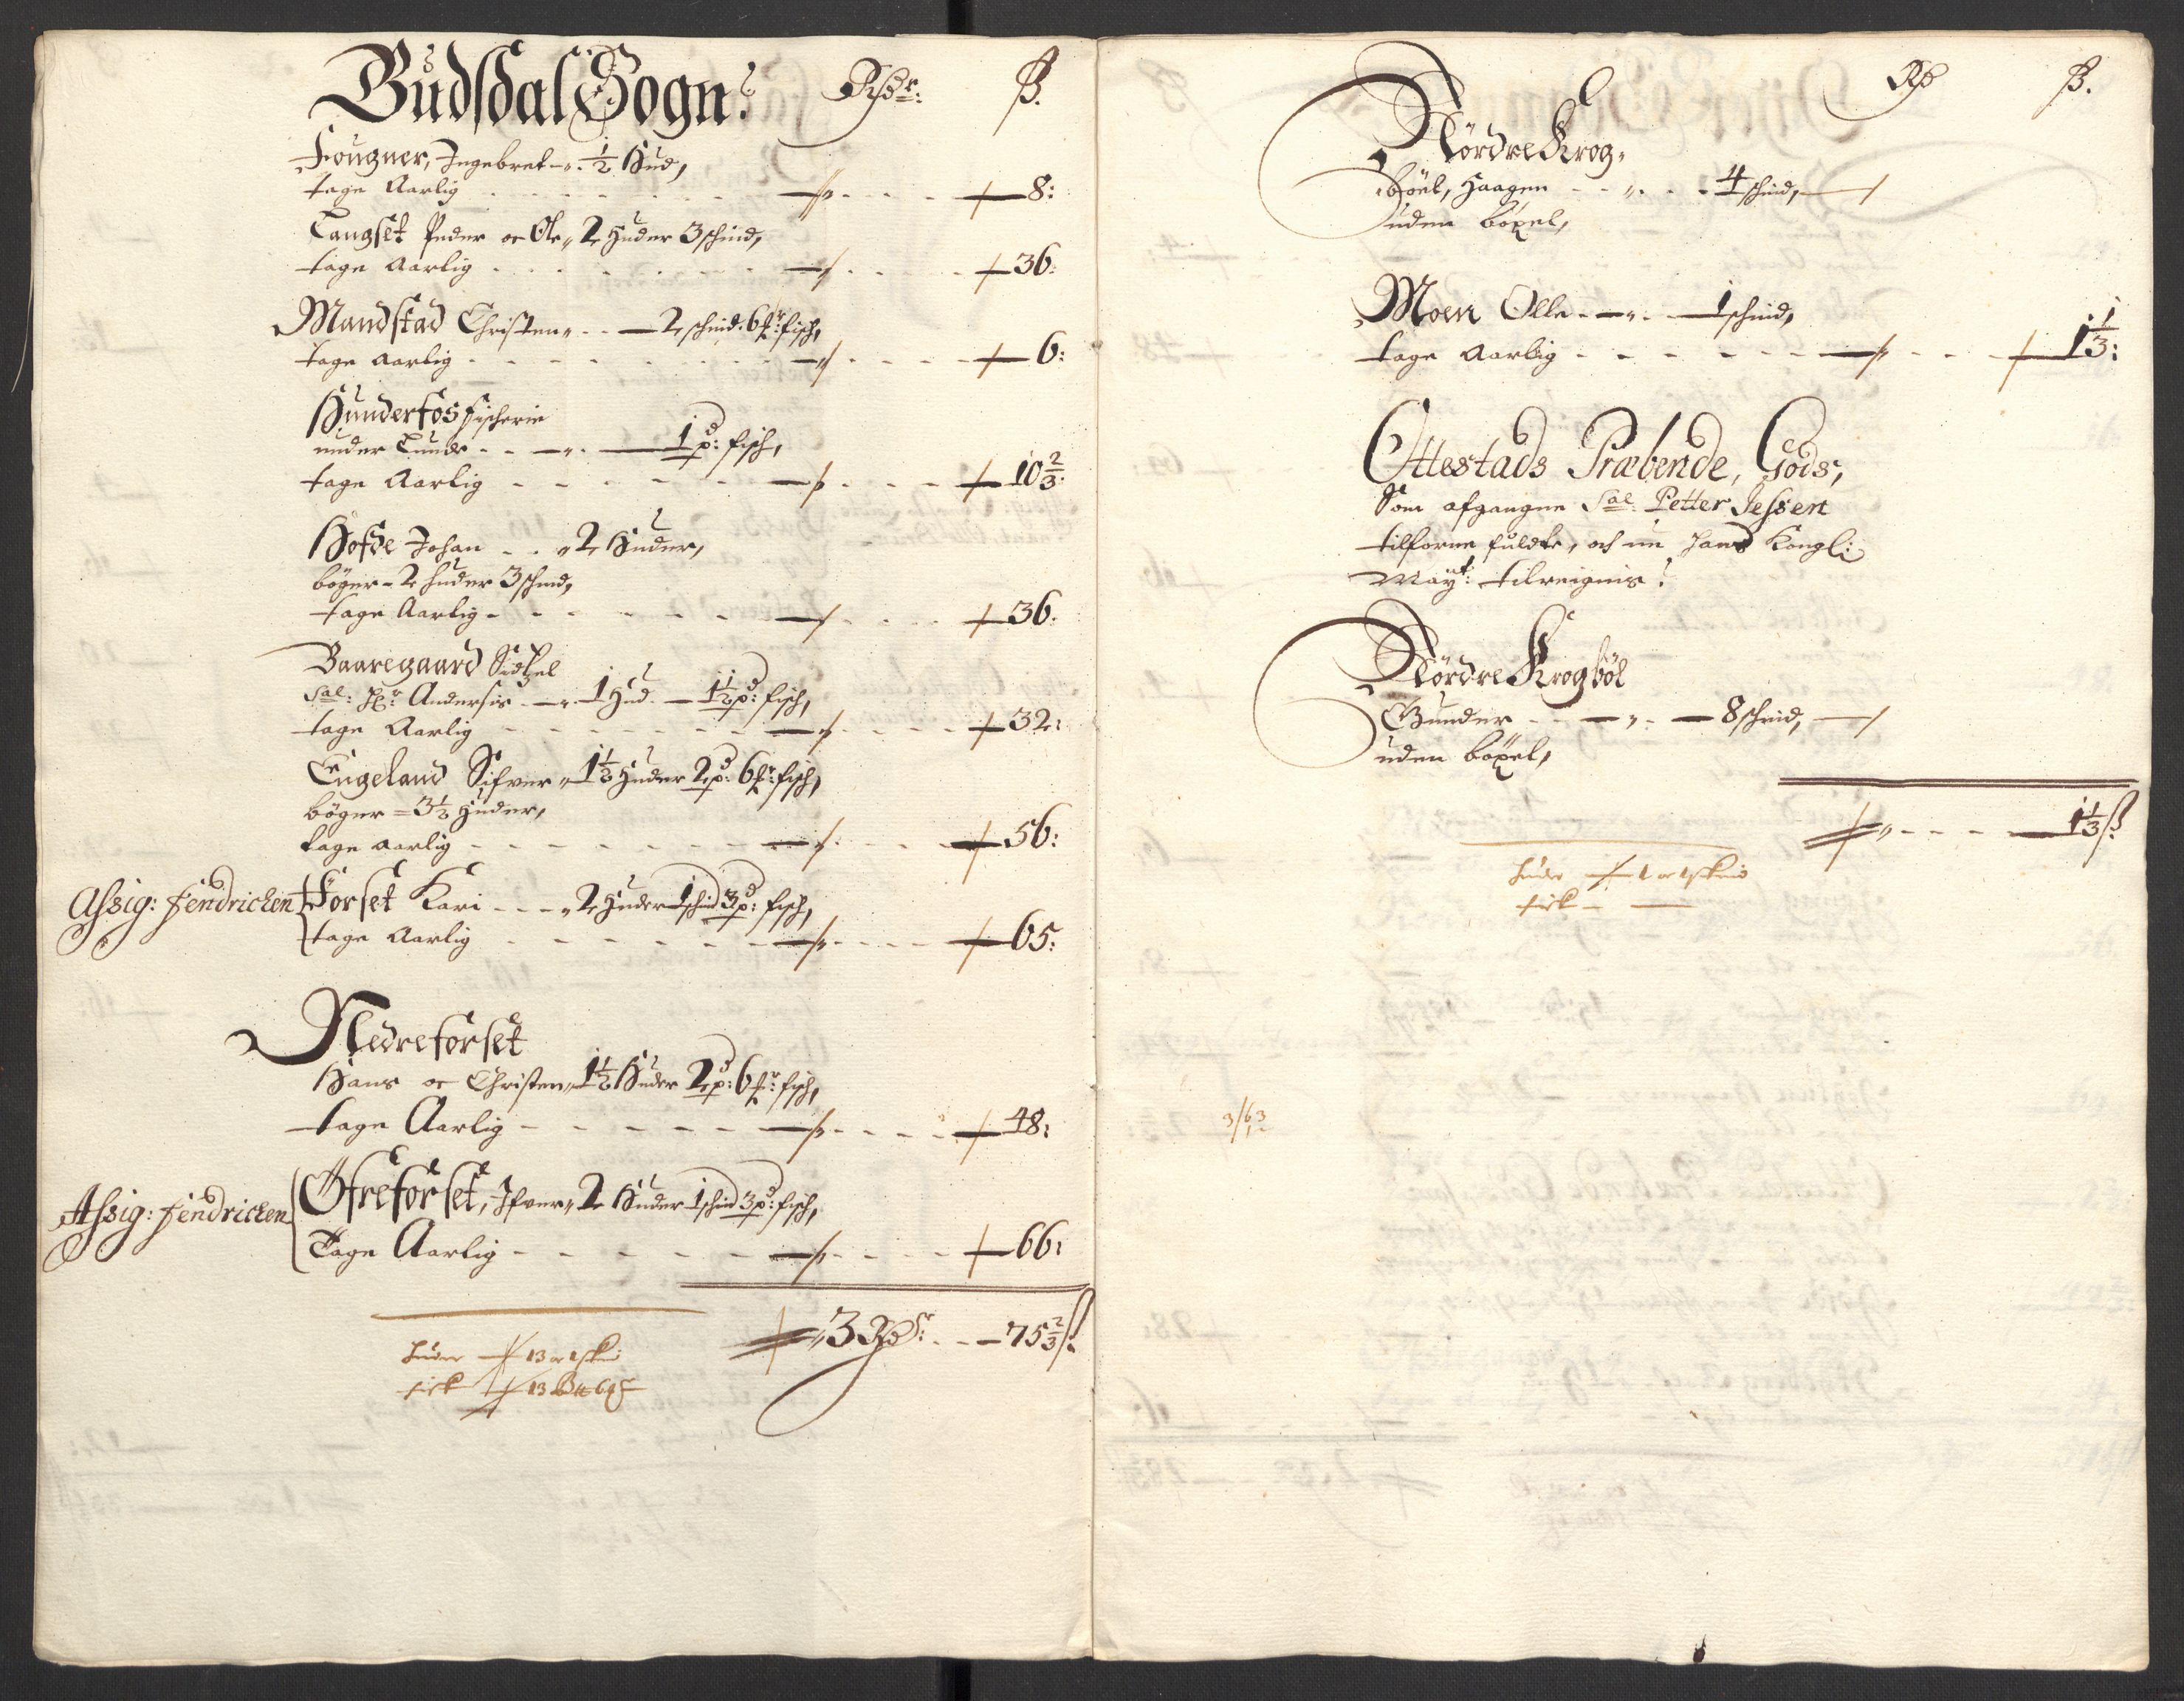 Budsdal Sogn. Rdr: ß.
Fougner, Ingebret - „ ½ Hud,
tage Aarlig - „ - 8:
Langset Peder oc Ole „ 2 Huder 3 schind,
tage Aarlig - „ - 36:
Mandstad Christen „ - 2 schind: 6 fr: fisch,
tage Aarlig - „ - 6:
Hunderfos fischerie
under Lunde - „ - 1 pd: fisch,
tage Aarlig - „ - 10⅔:
Hofde Johan - „ 2 Huder,
böger - 2 huder 3 schind,
tage Aarlig - „ - 36.
Baaregaard Sidzel
Sal: Hr: Andersis - „ 1 Hud - 1½ pd: fisch,
tage Aarlig - „ - 32:
Engeland Sifver „ 1½ Huder 2 pd: 6 fr: fisch,
böger = 3½ Huder,
tage Aarlig - „ - 56:
Assig: fendrichen Forset Kari - „ 2 Huder 1 schind 3 pd: fisch,
tage Aarlig - „ - 65:
Nedreforset
Hans oc Christen „ 1½ Huder 2 pd: 6 fr: fisch,
tage Aarlig - „ - 48:
Assig: fendrichen Öfreforset, Ifver „ 2 Huder 1 schind 3 pd: fisch,
Tage Aarlig - „ - 66:
3 Rdr: - 75⅔ ß.
huder 13 or 1 ski
fisk 13
Rd ß.
Nördre Krog-
böel, Haagen - „ - 4 schind,
uden böxel,
Moen Olle - „ - 1 schind,
tage Aarlig - „ - 1⅓:
Ottestads Præbende, Gods,
Som afgangne Sal: Petter Jessen
tilforne fuldte, och nu Hans Kongl:
Mayt: tilreignis.
Nördre Krogböl
Gunder - „ - 8 schind,
uden böxel,
„ - 1⅓ ß.
huder 1 or 1 skind
fisk -